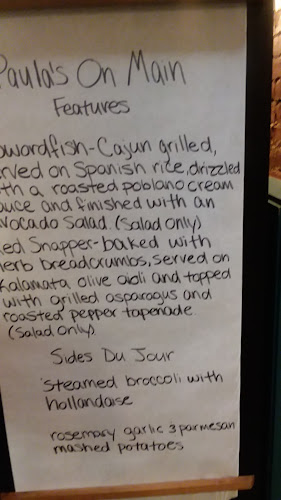 Paula's On Main
Features
Swordfish-Cajun grilled,
erved on Spanish rice, drizzled
ith a roasted poblano cream
auce and finished with an
vocado Salad. (Salad only)
ed Snapper-baked with
herb breadcrumbs, served on
Kalamata olive aioli and topped
with grilled asparagus and
roasted pepper tapenade.
(Salad Only)
Sides Du Jour
steamed broccoli with
hollandaise
rosemary garlic & parmesan
mashed potatoes